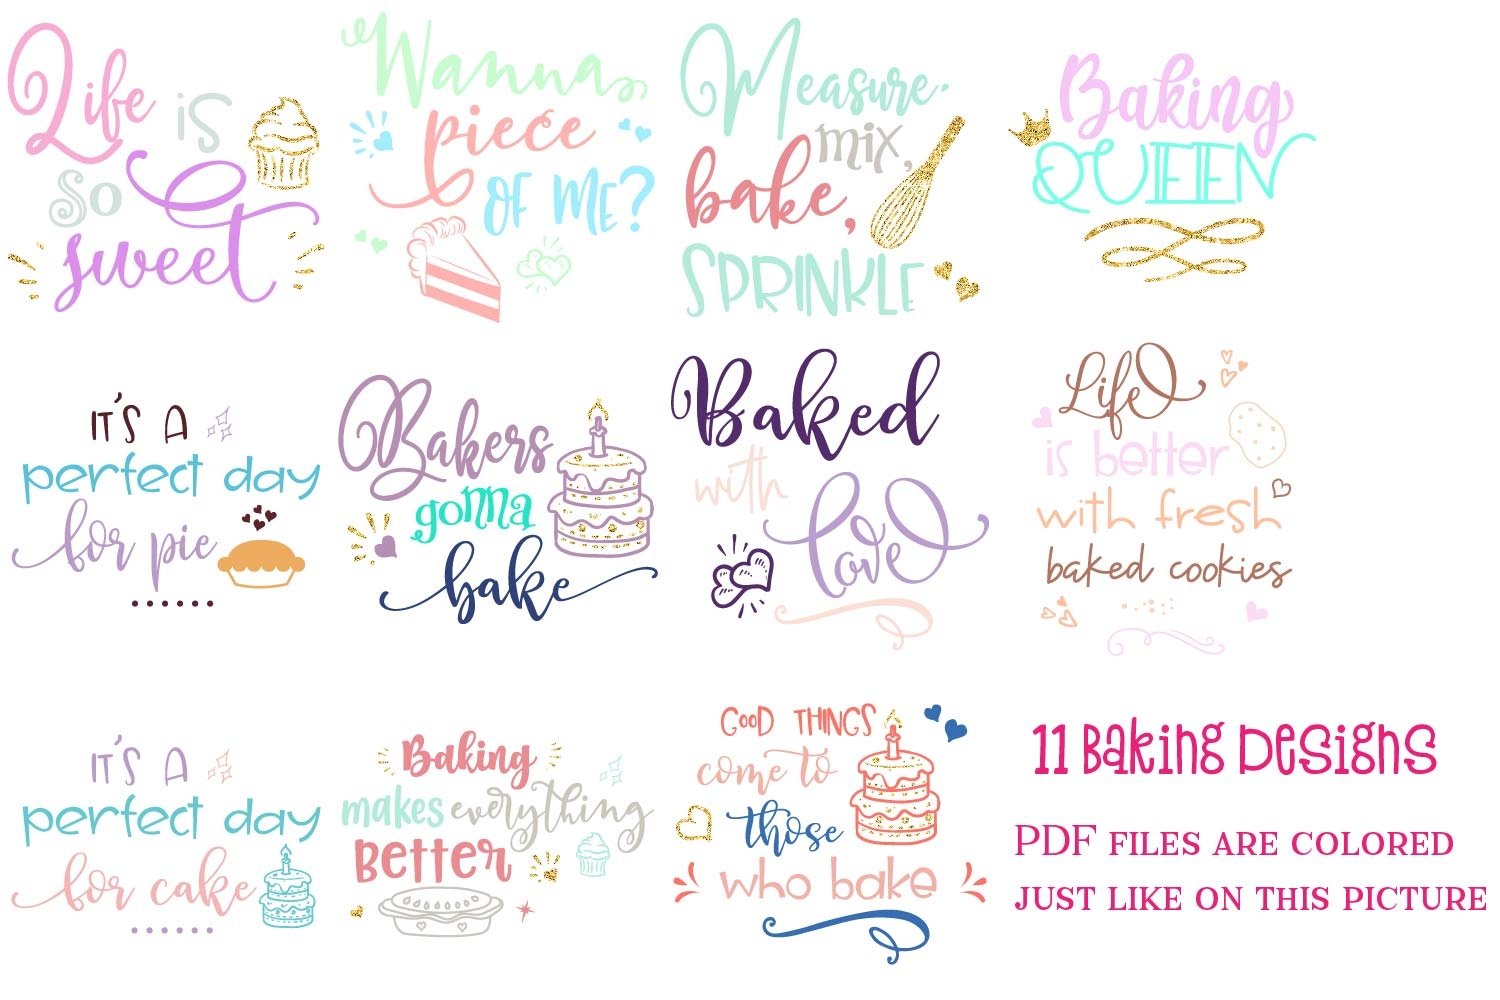 Life is
so
sweet
Wanna
piece
OF ME?
Measure.
mix,
bake,
SPRINKLE
Baking
QUEEN
IT'S A
perfect day
for pie
Bakers
gonna
bake
Baked
with
love
Life
is better
with fresh
baked cookies
IT'S A
perfect day
for cake
Baking
makes everything
Better
GOOD THINGS
come to
those
who bake
11 Baking Designs
PDF FILES ARE COLORED
JUST LIKE ON THIS PICTURE